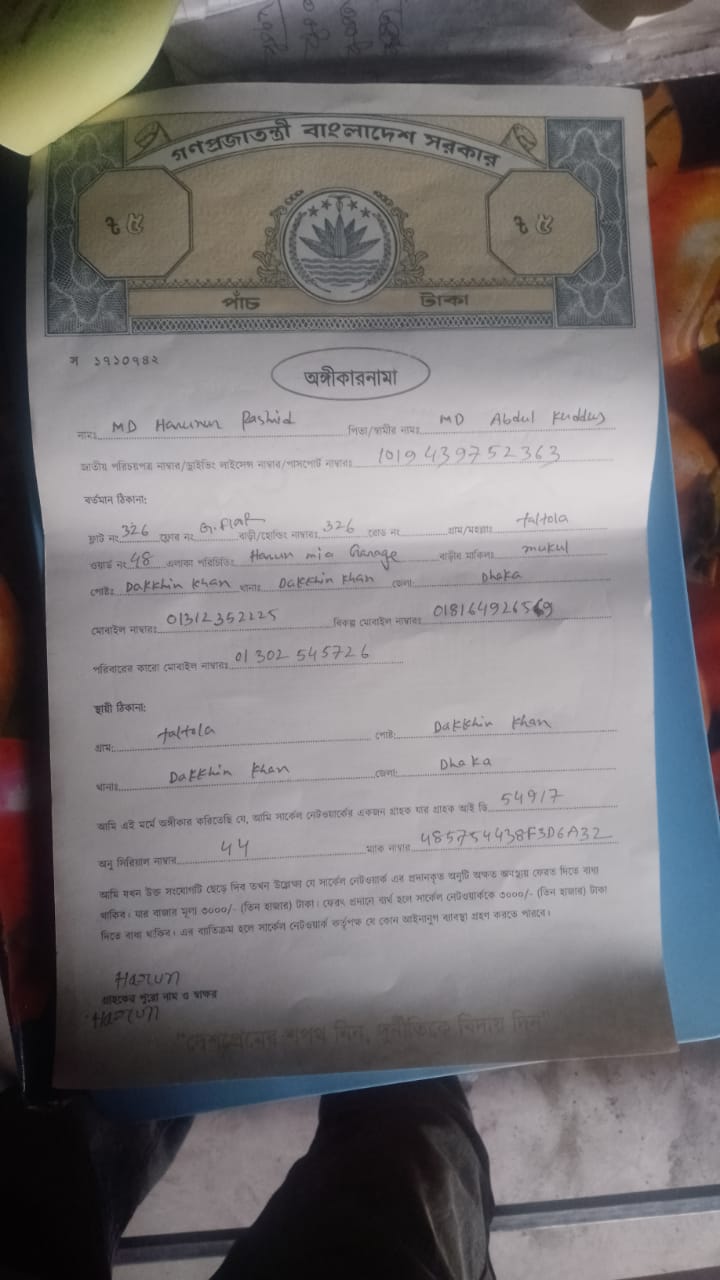 গণপ্রজাতন্ত্রী বাংলাদেশ সরকার
৳ ৫ ৳ ৫
পাঁচ টাকা
স ১৭১০৭৪২
অঙ্গীকারনামা
নামঃ MD Harunur Rashid পিতা/স্বামীর নামঃ MD Abdul Kuddus
জাতীয় পরিচয়পত্র নাম্বার/ড্রাইভিং লাইসেন্স নাম্বার/পাসপোর্ট নাম্বারঃ 1019439752363
বর্তমান ঠিকানা:
ফ্লাট নং 326 ফ্লোর নং বাড়ী/হোল্ডিং নাম্বারঃ 326 রোড নং গ্রাম/মহল্লাঃ taltola
ওয়ার্ড নং 48 এলাকা পরিচিতিঃ Harun mia Garage বাড়ীর মালিকঃ mukul
পোষ্টঃ Dakkhin Khan থানাঃ Dakkhin Khan জেলা: Dhaka
মোবাইল নাম্বারঃ 01312352225 বিকল্প মোবাইল নাম্বারঃ
পরিবারের কারো মোবাইল নাম্বারঃ 01302 545726
স্থায়ী ঠিকানা:
গ্রাম: taltola পোষ্ট: Dakkhin Khan
থানাঃ Dakkhin Khan জেলা: Dhaka
আমি এই মর্মে অঙ্গীকার করিতেছি যে, আমি সার্কেল নেটওয়ার্কের একজন গ্রাহক যার গ্রাহক আই ডি 54917
অনু সিরিয়াল নাম্বার 44 ম্যাক নাম্বার 485754438F3D6A32
আমি যখন উক্ত সংযোগটি ছেড়ে দিব তখন উল্লেক্ষ যে সার্কেল নেটওয়ার্ক এর প্রদানকৃত অনুটি অক্ষত অবস্থায় ফেরত দিতে বাধ্য
থাকিব। যার বাজার মূল্য ৩০০০/- (তিন হাজার) টাকা। ফেরৎ প্রদানে ব্যর্থ হলে সার্কেল নেটওয়ার্ককে ৩০০০/- (তিন হাজার) টাকা
দিতে বাধ্য থাকিব। এর ব্যতিক্রম হলে সার্কেল নেটওয়ার্ক কর্তৃপক্ষ যে কোন আইনানুগ ব্যবস্থা গ্রহণ করতে পারবে।
Harun
গ্রাহকের পুরো নাম ও স্বাক্ষর
Harun
"দেশপ্রেমের শপথ নিন, দুর্নীতিকে বিদায় দিন"